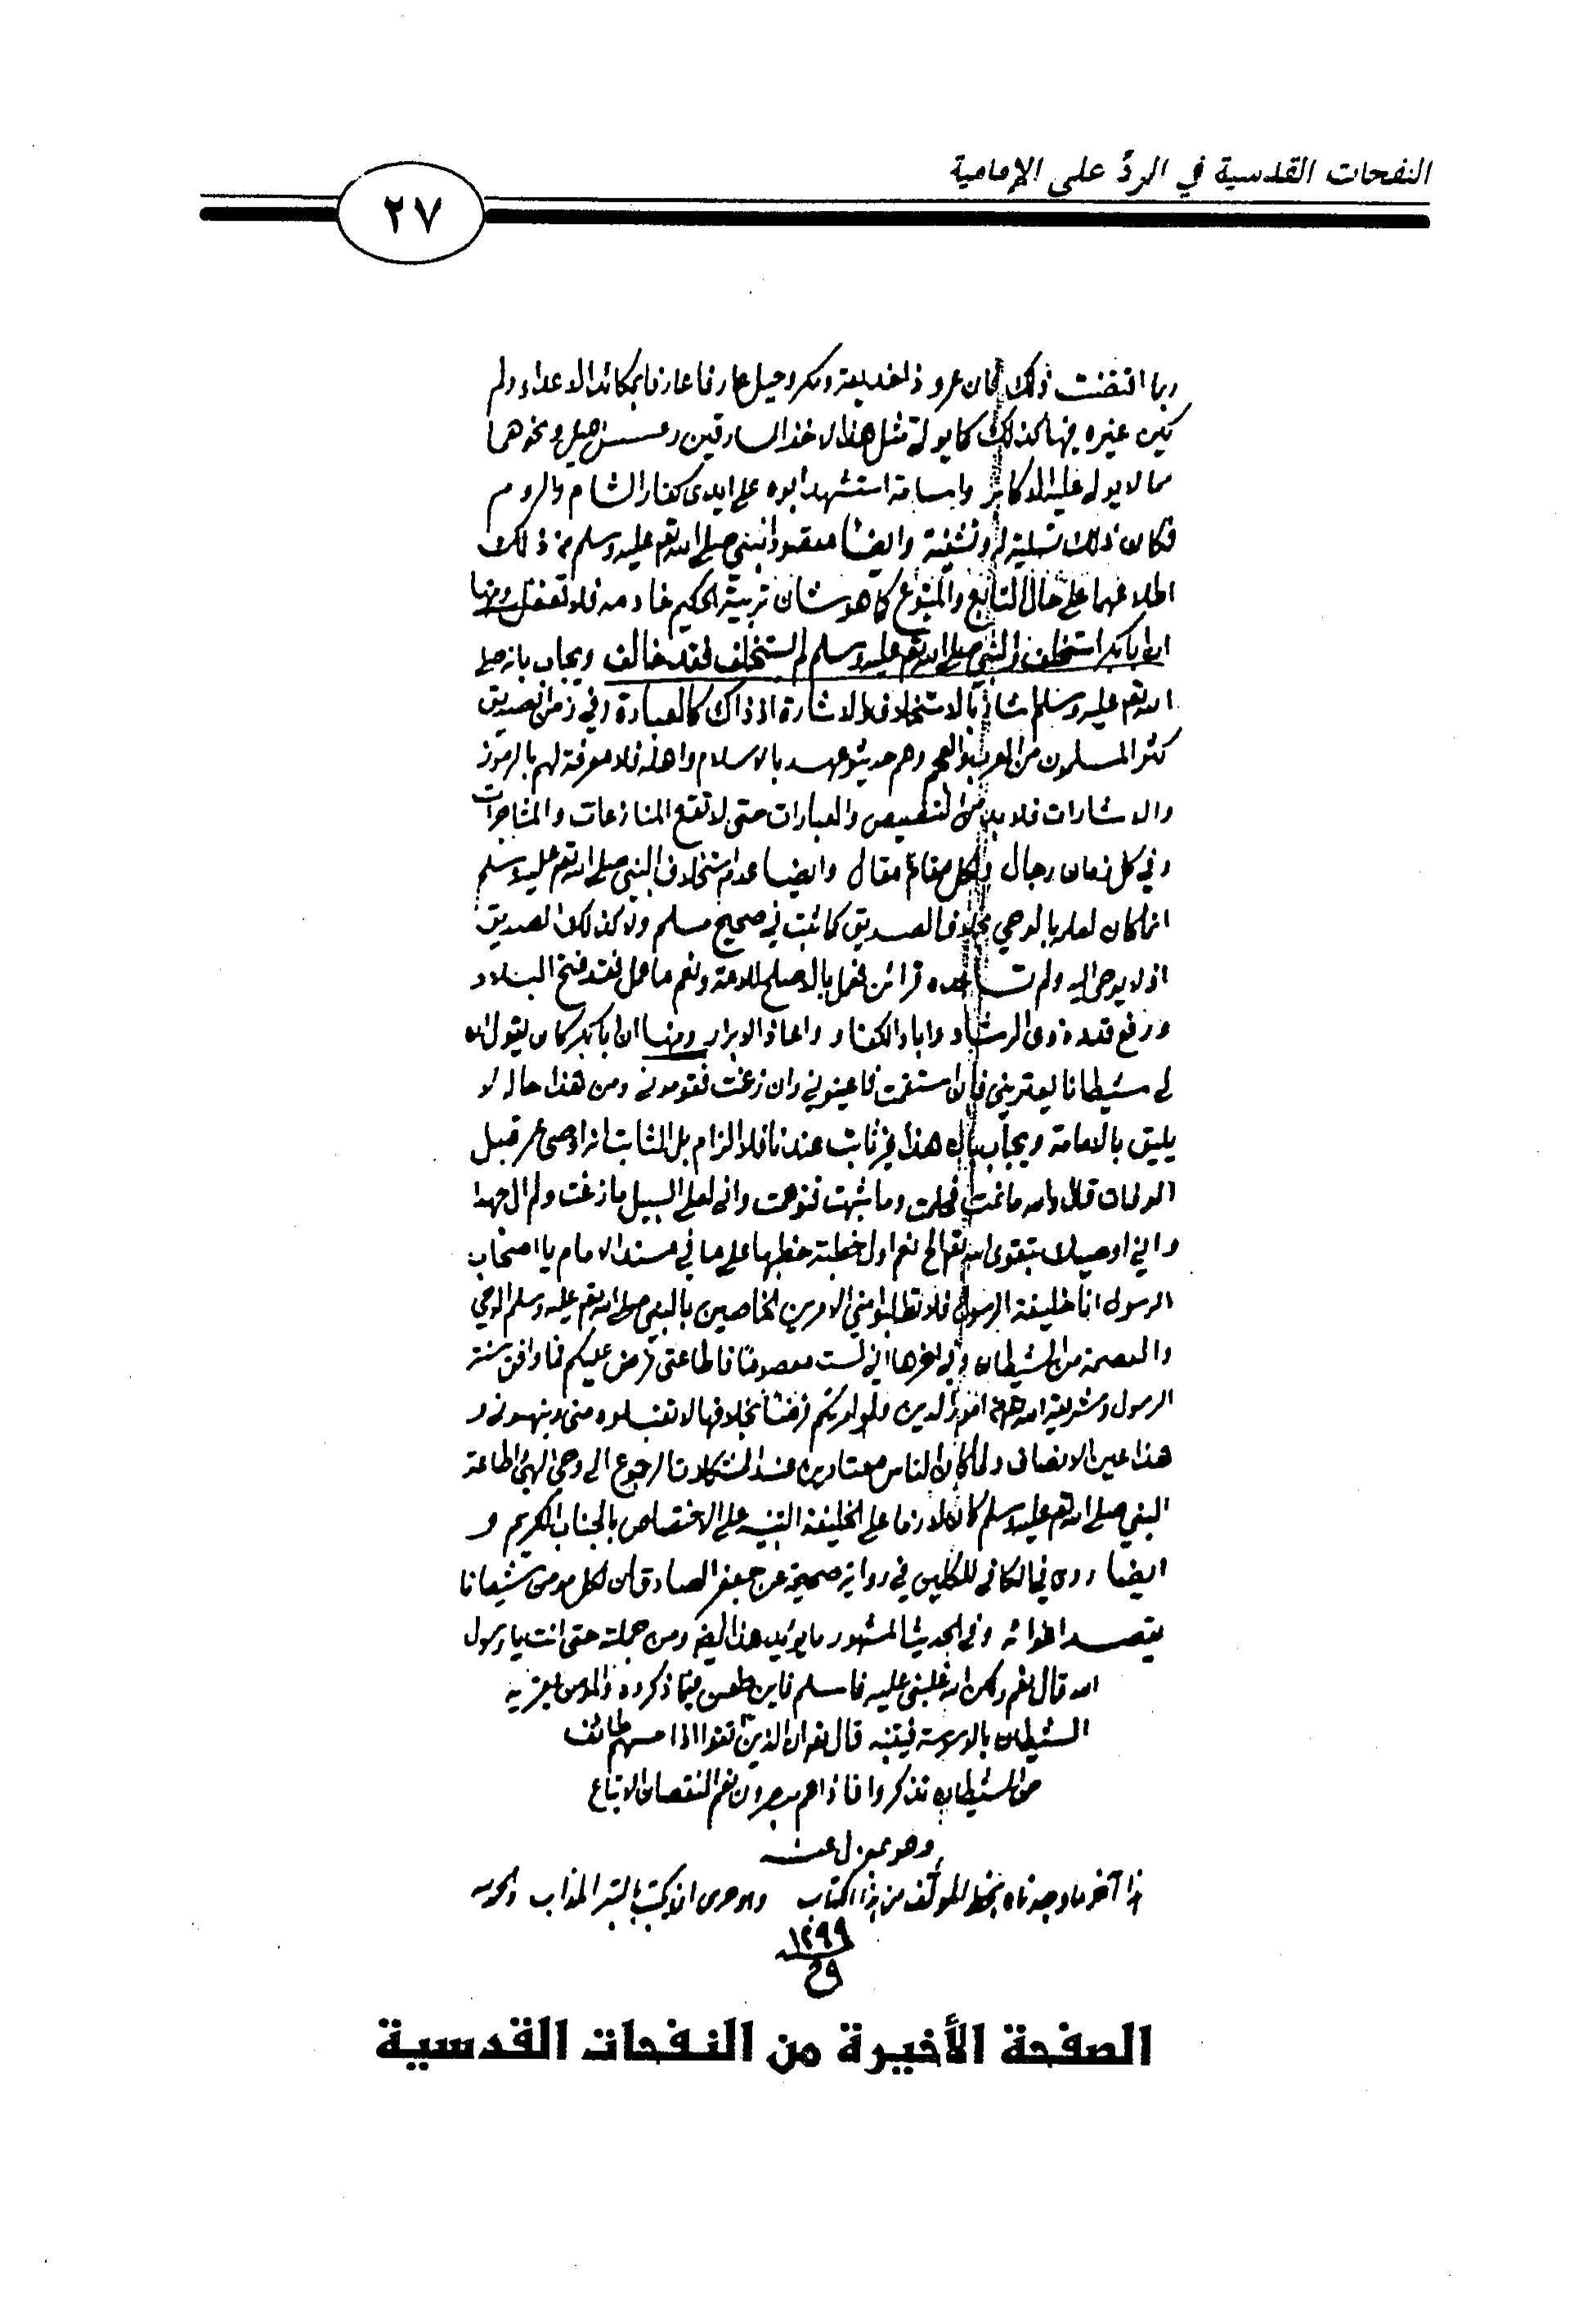 النفحات القدسية في الردّ على الإمامية
٢٧
ربما اقتضت ذلك فان عمرو ذا خديعة ومكر وحيل عارفا بمكائد الاعداء ولم
يكن غيره فيها كذلك كما يولى مثل هذا لاخذ السارقين وعسس الليل ونحوهما
مما لا يولى عليه الاكابر واسامة استشهد ابوه على ايدى كفار الشام والروم
فكان ذلك تسلية له وتشفية وايضا مقصود النبي صلى الله تعم عليه وسلم من ذلك
اطلاعهما على حال التابع والمتبوع كما هو شان تربية الحكيم خادمه فلا تغفل ومنها
ان ابا بكر استخلف والنبي صلى الله تعم عليه وسلم لم يستخلف فقد خالف ويجاب بانه صلى
الله تعم عليه وسلم اشار بالاستخلاف والاشارة اذ ذاك كالعبارة وفي زمن الصديق
كثر المسلمون من العرب والعجم وهم حديثو عهد بالاسلام واهله فلا معرفة لهم بالرموز
والاشارات فلا بد من التنصيص والعبارات حتى لا تقع المنازعات والمشاجرات
وفي كل زمان رجال ولكل مقام مقال وايضا عدم استخلاف النبي صلى الله تعم عليه وسلم
انما كان لعلمه بالوحي بخلافة الصديق كما ثبت في صحيح مسلم ولا كذلك الصديق
اذ لا يوحى اليه ولم تساعده قرائن فعمل بالاصلح للامة ونعم ما عمل فقد فتح البلاد
ورفع قدر ذوى الرشاد واباد الكفار واعان الابرار ومنها ان ابا بكر كان يقول ان
لي شيطانا يعتريني فان استقمت فاعينوني وان زغت فقوموني ومن هذا حاله لا
يليق بالامامة ويجاب بان هذا غير ثابت عندنا فلا الزام بل الثابت انه اوصى عمر قبل
الوفاة قال والله ما نمت فحلمت وما شبهت فتوهمت واني لعلى السبيل ما زغت ولم ال جهدا
واني اوصيك بتقوى الله تعالى الخ نعم اول خطبة خطبها على ما في مسند الامام يا اصحاب
الرسول انا خليفة الرسول فلا تطلبوا مني الامرين الخاصين بالنبي صلى الله تعم عليه وسلم الوحي
والعصمة من الشيطان وفي اخرها اني لست معصوما فاطاعتى فرض عليكم فيما وافق سنة
الرسول وشريعة الله من امور الدين ولو امرتكم فرضا بخلافها لا تقبلوه مني ونبهوني و
هذا عين الانصاف ولما كان الناس معتادين عند المشكلات الرجوع الى وحي الهي واطاعة
النبي صلى الله تعم عليه وسلم كان لازما على الخليفة التنبيه على الاختصاص بالجناب الكريم و
ايضا روى في الكافي للكليني في رواية صحيحة عن جعفر الصادق ان لكل مومن شيطانا
يقصد اغوائه وفي الحديث المشهور ما يؤيد هذا ايضا ومن جملته حتى انت يا رسول
الله قال نعم ولكن الله غلبني عليه فاسلم فاين طعن فيما ذكروه والمومن يعتريه
الشيطان بالوسوسة فينتبه قال تعم ان الذين اتقوا اذا مسهم طائف
من الشيطان تذكروا فاذا هم مبصرون نعم النقصان الاتباع
وهو بمعزل عنه
هذا آخر ما وجدناه بخط المؤلف من هذا الكتاب وهو حرى ان يكتب بالتبر المذاب والحمد لله
١٢٩٩
الصفحة الأخيرة من النفحات القدسية